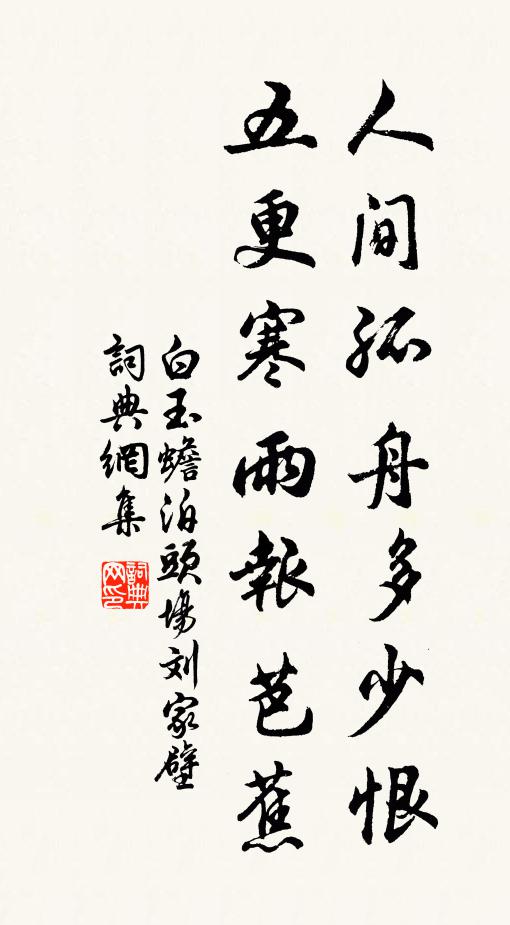 人间孤舟多少恨
五更寒雨報芭蕉
白玉蟾泊頭場刘家壁
詞典網集
詞典网印